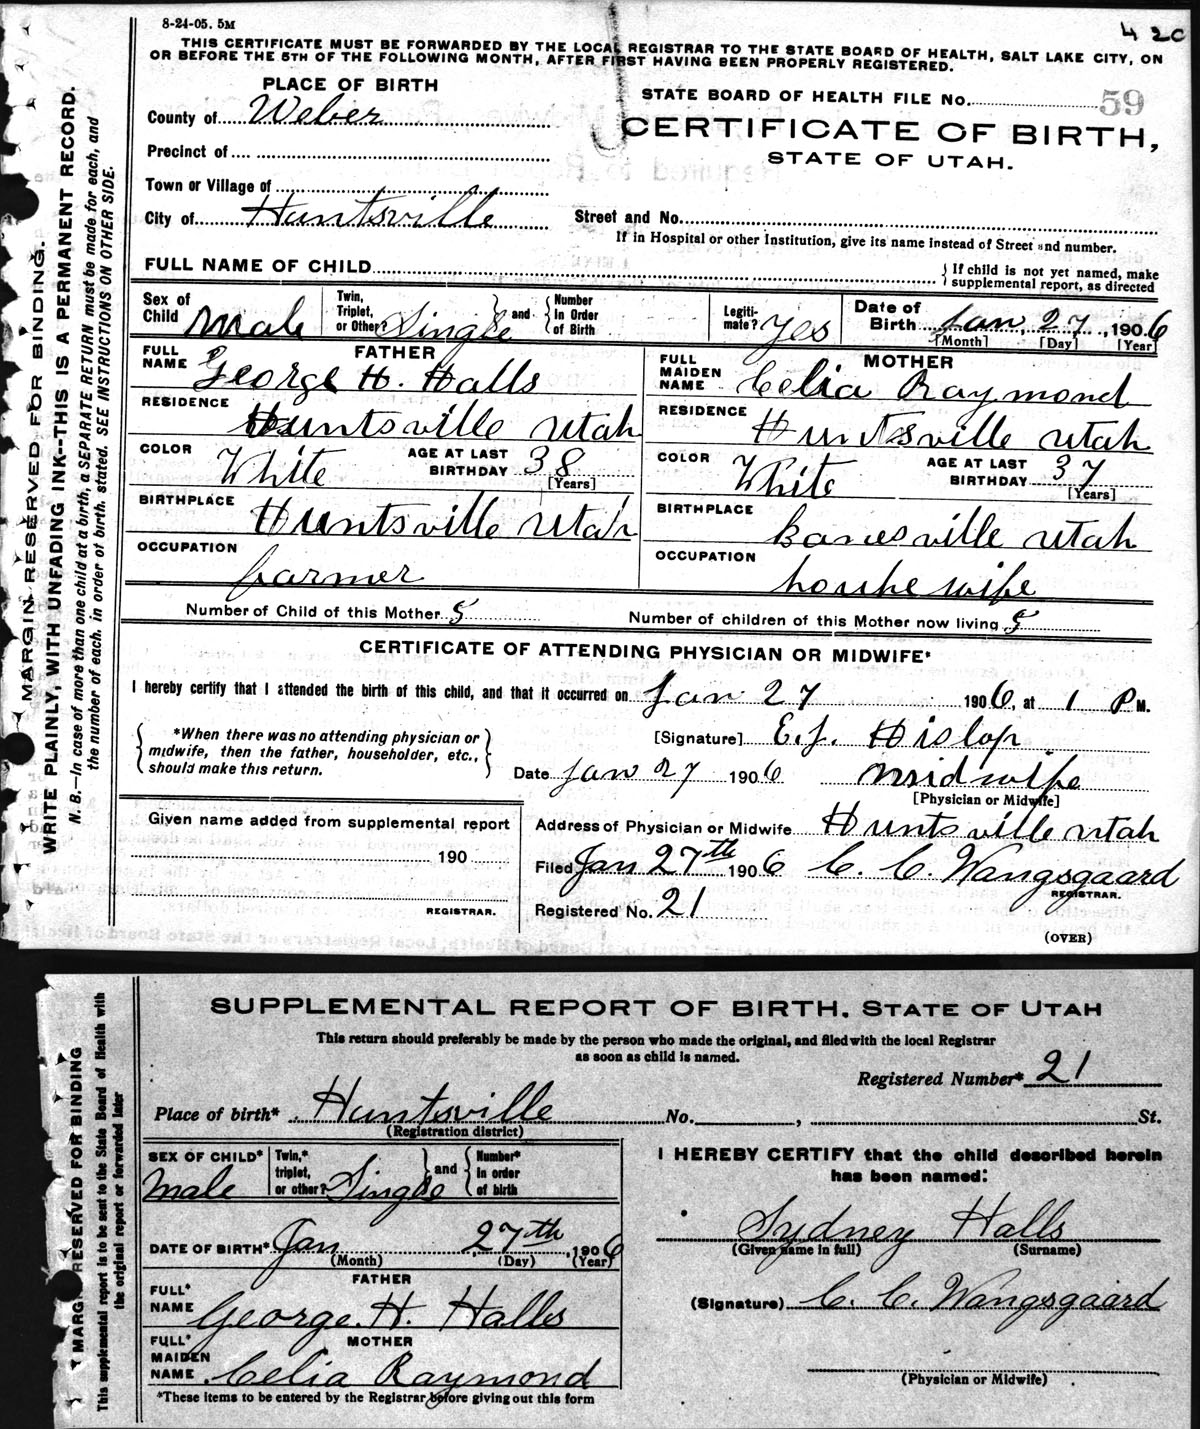 8-24-05. 5M
4 20
THIS CERTIFICATE MUST BE FORWARDED BY THE LOCAL REGISTRAR TO THE STATE BOARD OF HEALTH, SALT LAKE CITY, ON
OR BEFORE THE 5TH OF THE FOLLOWING MONTH, AFTER FIRST HAVING BEEN PROPERLY REGISTERED.
MARGIN RESERVED FOR BINDING.
WRITE PLAINLY, WITH UNFADING INK--THIS IS A PERMANENT RECORD.
N. B.—In case of more than one child at a birth, a SEPARATE RETURN must be made for each, and
the number of each, in order of birth, stated. SEE INSTRUCTIONS ON OTHER SIDE.
PLACE OF BIRTH
STATE BOARD OF HEALTH FILE No. 59
County of Weber
CERTIFICATE OF BIRTH,
STATE OF UTAH.
Precinct of
Town or Village of
City of Huntsville
Street and No.
If in Hospital or other Institution, give its name instead of Street and number.
FULL NAME OF CHILD
If child is not yet named, make
supplemental report, as directed
Sex of Child Male
Twin, Triplet, or Other? Single
and Number In Order of Birth
Legitimate? Yes
Date of Birth Jan, 27, 1906
[Month] [Day] [Year]
FATHER
FULL NAME George H. Halls
MOTHER
FULL MAIDEN NAME Celia Raymond
RESIDENCE Huntsville Utah
RESIDENCE Huntsville Utah
COLOR White AGE AT LAST BIRTHDAY 38 [Years]
COLOR White AGE AT LAST BIRTHDAY 37 [Years]
BIRTHPLACE Huntsville Utah
BIRTHPLACE Kanesville Utah
OCCUPATION farmer
OCCUPATION houhe wife
Number of Child of this Mother 5
Number of children of this Mother now living 5
CERTIFICATE OF ATTENDING PHYSICIAN OR MIDWIFE*
I hereby certify that I attended the birth of this child, and that it occurred on Jan 27 1906, at 1 P M.
*When there was no attending physician or
midwife, then the father, householder, etc.,
should make this return.
[Signature] E. J. Hislop
Date Jan 27 1906 Midwife
[Physician or Midwife]
Given name added from supplemental report
190
REGISTRAR.
Address of Physician or Midwife Huntsville Utah
Filed Jan 27th 1906 C. C. Wangsgaard
REGISTRAR.
Registered No. 21
(OVER)
MARGIN RESERVED FOR BINDING
This supplemental report is to be sent to the State Board of Health with
the original report or forwarded later
SUPPLEMENTAL REPORT OF BIRTH. STATE OF UTAH
This return should preferably be made by the person who made the original, and filed with the local Registrar
as soon as child is named.
Registered Number* 21
Place of birth* Huntsville No. , St.
(Registration district)
SEX OF CHILD* Male
Twin,* triplet, or other? Single
and Number* In order of birth
DATE OF BIRTH* Jan 27th, 1906
(Month) (Day) (Year)
FATHER
FULL* NAME George. H. Halls
MOTHER
FULL* MAIDEN NAME Celia Raymond
*These items to be entered by the Registrar before giving out this form
I HEREBY CERTIFY that the child described herein
has been named:
Sydney Halls
(Given name in full) (Surname)
(Signature) C. C. Wangsgaard
(Physician or Midwife)